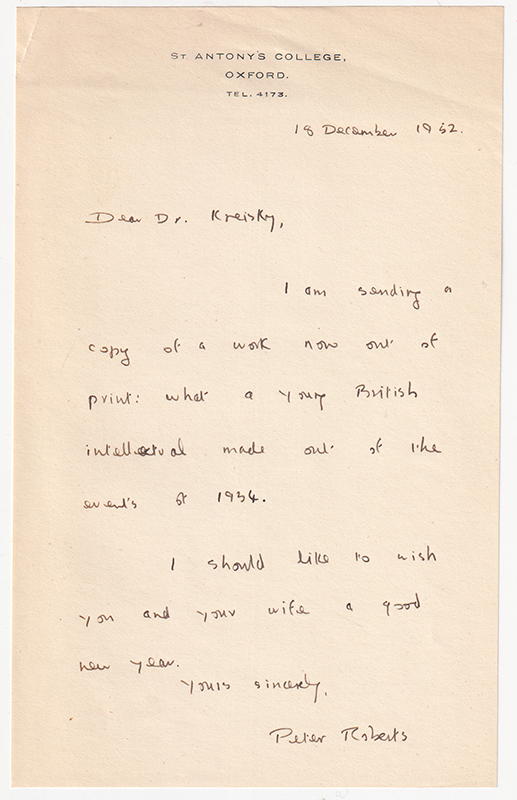 ST ANTONY'S COLLEGE,
OXFORD.
TEL. 4173.
18 December 1952.
Dear Dr. Kreisky,
I am sending a
copy of a work now out of
print: what a young British
intellectual made out of the
events of 1934.
I should like to wish
you and your wife a good
new year.
Yours sincerely,
Peter Roberts